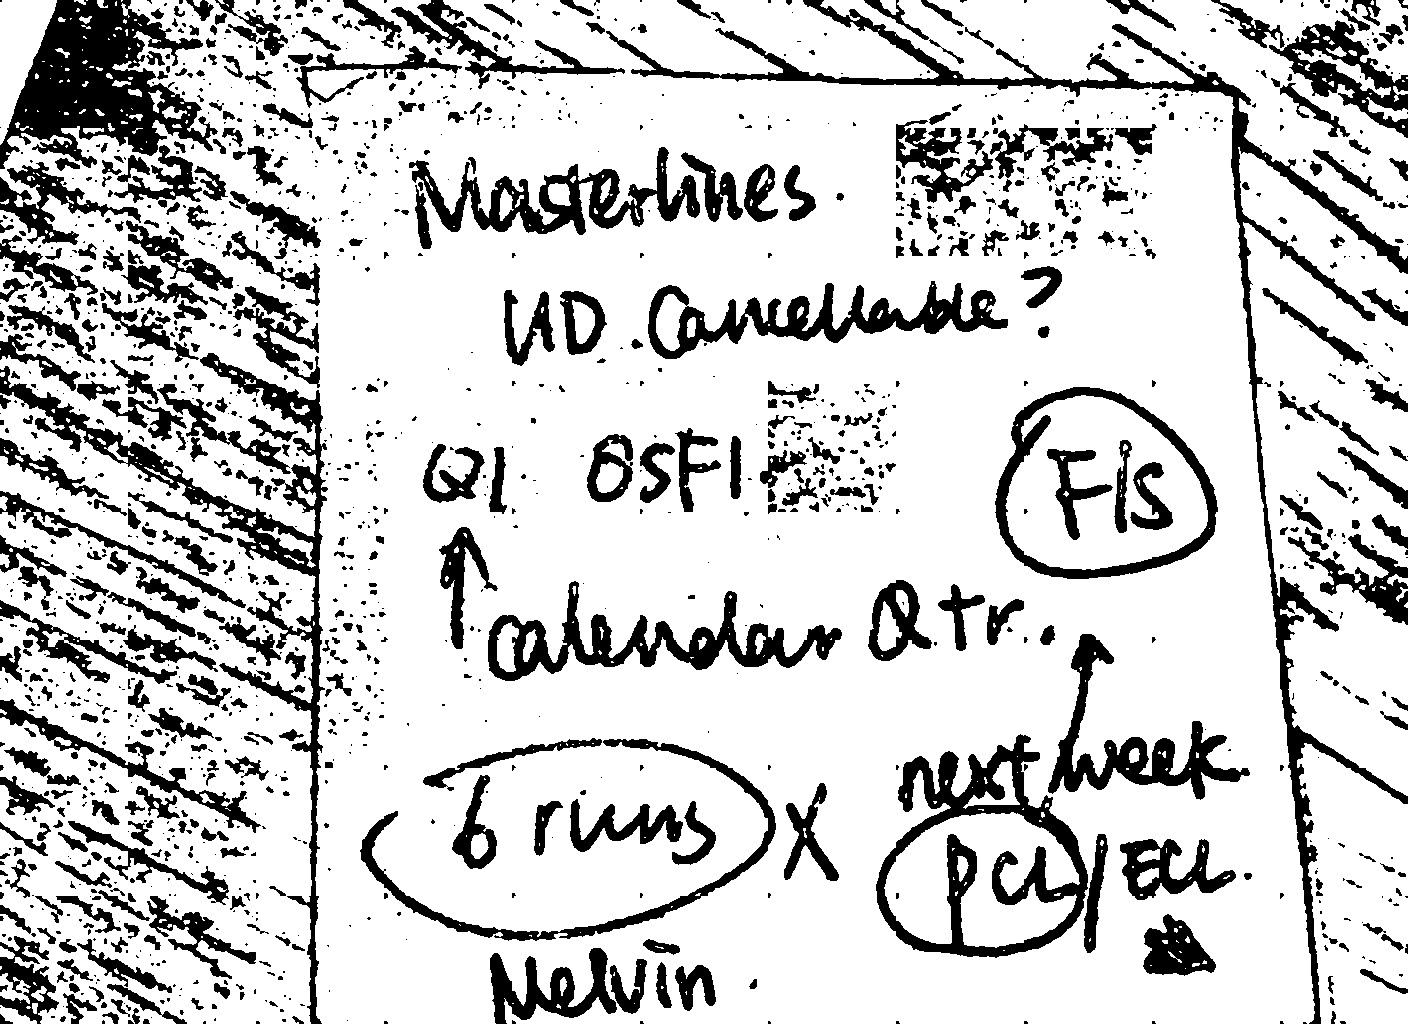 Masterlines.
UD. Cancellable?
Q1 OSFI
FIS
Calendar Qtr.
next week
6 runs X
PCL/ECL.
Melvin.